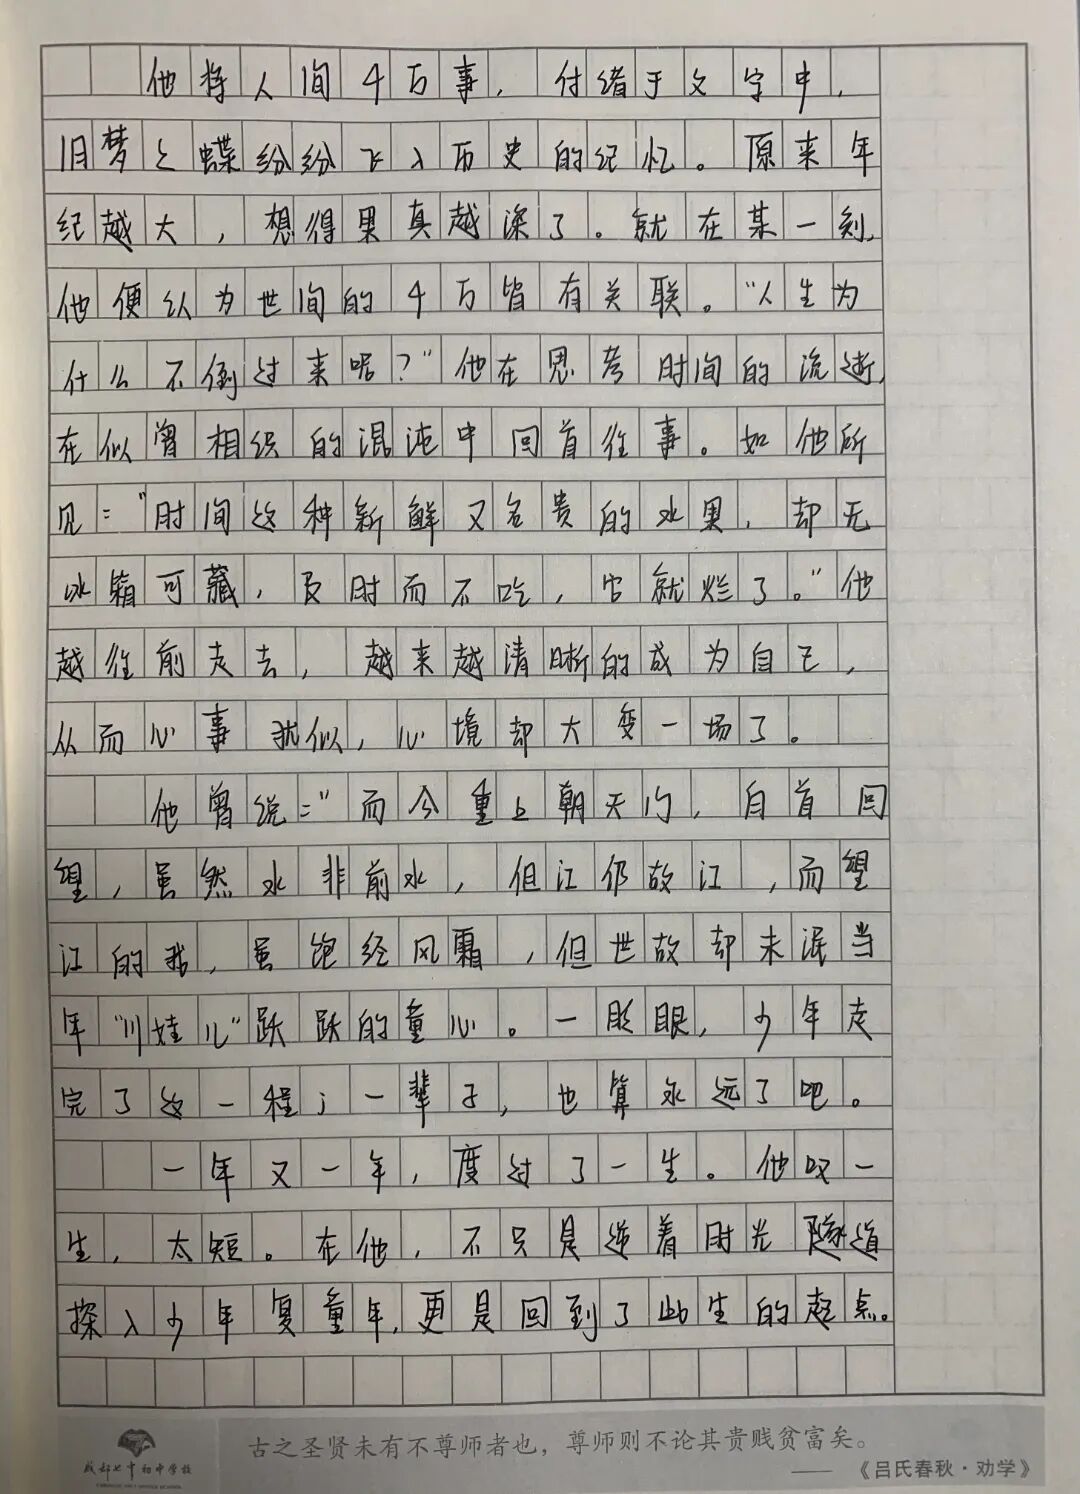 他将人间千万事，付绪于文字中，
旧梦之蝶纷纷飞入历史的纪忆。原来年
纪越大，想得果真越深了。就在某一刻，
他便认为世间的千万皆有关联。“人生为
什么不倒过来呢？”他在思考时间的流逝，
在似曾相织的混沌中回首往事。如他所
见：“时间这种新鲜又名贵的水果，却无
冰箱可藏，及时而不吃，它就烂了。”他
越往前走去，越来越清晰的成为自己，
从而心事犹似，心境却大变一场了。
他曾说：“而今重上朝天门，白首回
望，虽然水非前水，但江仍故江，而望
江的我，虽饱经风霜，但世故却未泯当
年“川娃儿”跃跃的童心。一眨眼，少年走
完了这一程；一辈子，也算永远了吧。
一年又一年，度过了一生。他叹一
生，太短。在他，不只是逆着时光隧道
探入少年复童年，更是回到了此生的起点。
古之圣贤未有不尊师者也，尊师则不论其贵贱贫富矣。
——《吕氏春秋·劝学》
成都七中初中学校